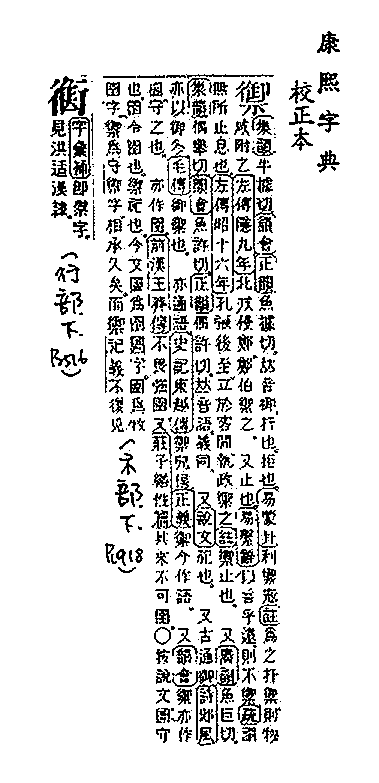 康熙字典
校正本
禦
集韻牛據切韻會正韻魚據切𠀤音御行也拒也易蒙上利禦寇註爲之扞禦則物
咸附之左傳隱九年北戎侵鄭鄭伯禦之 又止也易繫辭以言乎遠則不禦疏謂
無所止息也左傳昭十六年孔張後至立於客閒執政禦之註禦止也 又廣韻魚巨切
集韻偶舉切韻會魚許切正韻偶許切𠀤音語義同 又說文祀也 又古通御詩邶風
亦以御冬毛傳御禦也 亦通語史記東越傳禦兒侯正義禦今作語 又韻會禦亦作
圉守之也 亦作圉前漢王莽傳不畏強圉又莊子繕性篇其來不可圉〇按說文圉守
也圄令圄也禦祀也今文圄爲囹圄字圉爲牧
圉字禦爲守禦字相承久矣而禦祀義不復見
(示部下 P.918)
字彙補即禦字
見洪适漢隸
(行部下 P.516)